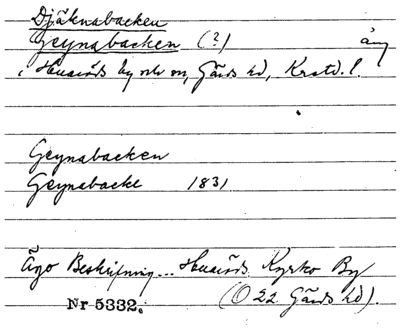 Djäknabacken
Geynabacken (?) äng
i Huaröds by och sn, Gärds hd, Krstd. l.
Geynabacken
Geynabacke 1831
Ägo Beskrifning... Huaröds Kyrko By
Nr 5332. (O 22 Gärds hd).